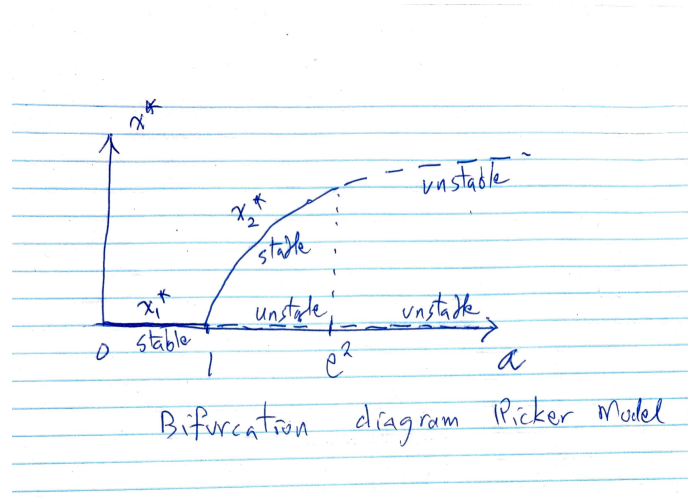 x*
unstable
x₂*
stable
x₁*
unstable
unstable
0
stable
1
e²
a
Bifurcation diagram Picker Model